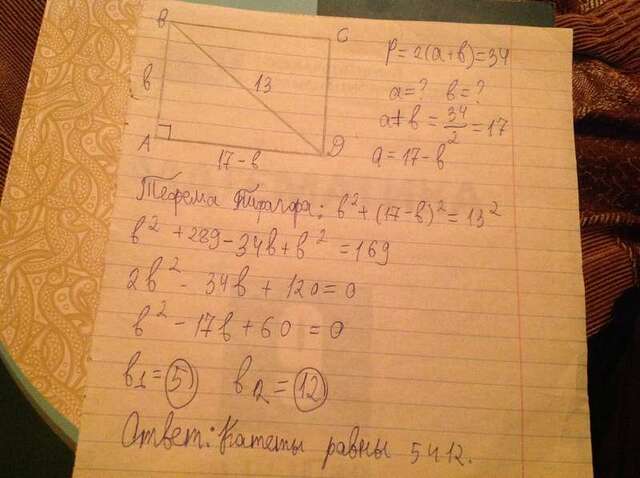 B
C
P=2(a+b)=34
в
13
a=? в=?
a+в = 34/2 = 17
A
D
17-в
a=17-в
Теорема Пифагора: в²+(17-в)²=13²
в²+289-34в+в²=169
2в²-34в+120=0
в²-17в+60=0
в1=5 в2=12
Ответ: Катеты равны 5 и 12.